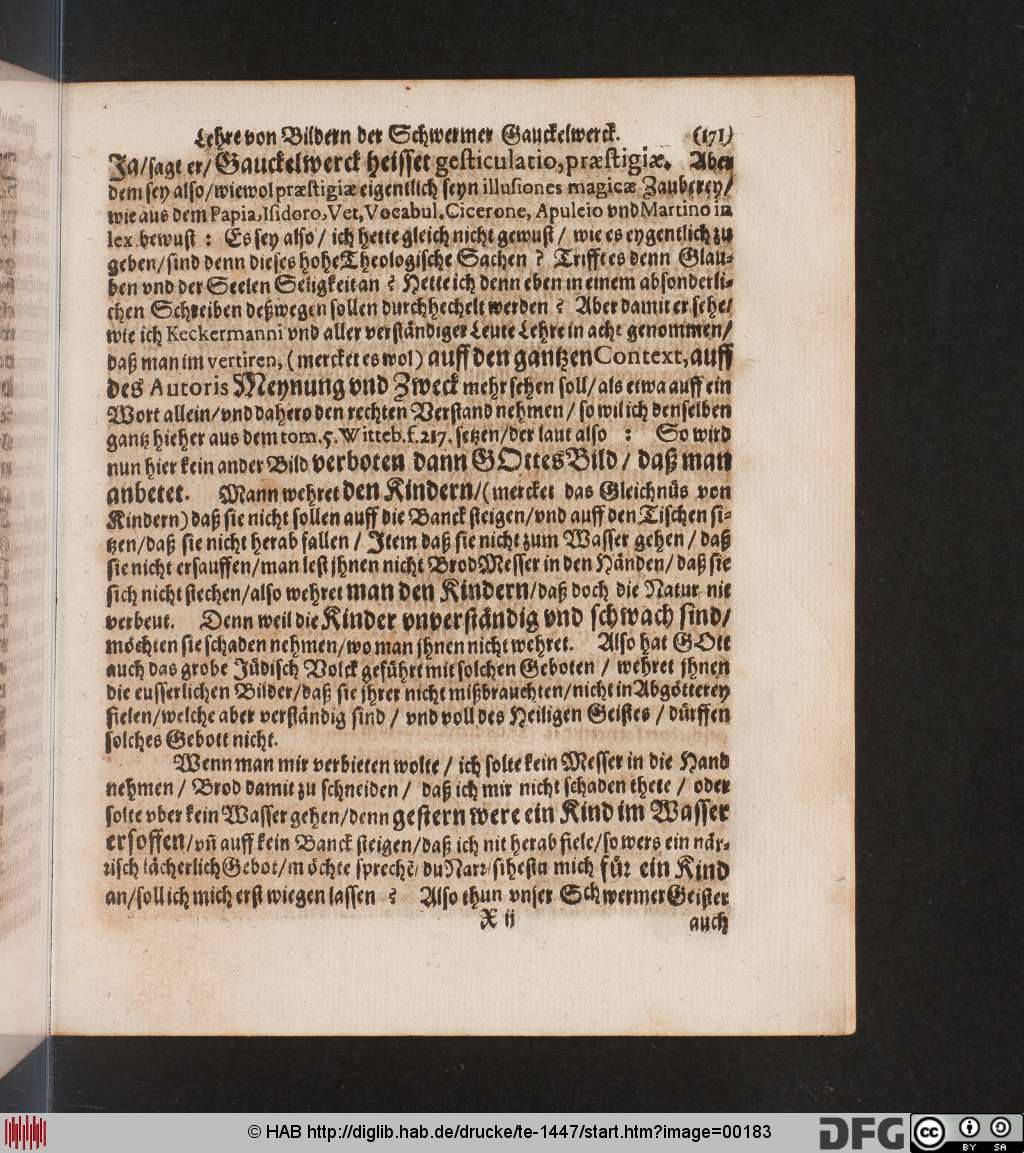 Lehre von Bildern der Schwermer Gauckelwerck. (171)
Ja/sagt er/ Gauckelwerck heisset gesticulatio, præstigiæ. Aber
dem sey also/wiewol præstigiæ eigentlich seyn illusiones magicæ Zauberey/
wie aus dem Papia, Isidoro, Vet, Vocabul. Cicerone, Apuleio vnd Martino in
lex. bewust : Es sey also/ ich hette gleich nicht gewust/ wie es eygentlich zu
geben/sind denn dieses hohe Theologische Sachen ? Trifft es denn Glau-
ben vnd der Seelen Seligkeit an ? Hette ich denn eben in einem absonderli-
chen Schreiben deßwegen sollen durchhechelt werden ? Aber damit er sehe/
wie ich Keckermanni vnd aller verständiger Leute Lehre in acht genommen/
daß man im vertiren, (mercket es wol) auff den gantzen Context, auff
des Autoris Meynung vnd Zweck mehr sehen soll/als etwa auff ein
Wort allein/vnd dahero den rechten Verstand nehmen/ so wil ich denselben
gantz hieher aus dem tom. 5. Witteb. f. 217. setzen/der laut also : So wird
nun hier kein ander Bild verboten dann GOttes Bild/ daß man
anbetet. Mann wehret den Kindern/(mercket das Gleichnüs von
Kindern) daß sie nicht sollen auff die Banck steigen/vnd auff den Tischen si-
tzen/daß sie nicht herab fallen/ Item daß sie nicht zum Wasser gehen/daß
sie nicht ersauffen/man lest jhnen nicht Brod Messer in den Händen/daß sie
sich nicht stechen/also wehret man den Kindern/daß doch die Natur nit
verbeut. Denn weil die Kinder vnverständig vnd schwach sind/
möchten sie schaden nehmen/wo man jhnen nicht wehret. Also hat GOtt
auch das grobe Jüdisch Volck geführt mit solchen Geboten/ wehret jhnen
die eusserlichen Bilder/daß sie jhrer nicht mißbrauchten/nicht in Abgötterey
fielen/welche aber verständig sind/ vnd voll des Heiligen Geistes/dürffen
solches Gebott nicht.
Wenn man mir verbieten wolte/ ich solte kein Messer in die Hand
nehmen/ Brod damit zu schneiden/ daß ich mir nicht schaden thete/ oder
solte vber kein Wasser gehen/denn gestern were ein Kind im Wasser
ersoffen/vñ auff kein Banck steigen/daß ich nit herab fiele/so wers ein när-
risch lächerlich Gebot/möchte sprechē/ du Narr/sihestu mich für ein Kind
an/soll ich mich erst wiegen lassen ? Also thun vnser Schwermer Geister
X ij auch
© HAB http://diglib.hab.de/drucke/te-1447/start.htm?image=00183
DFG
cc BY SA